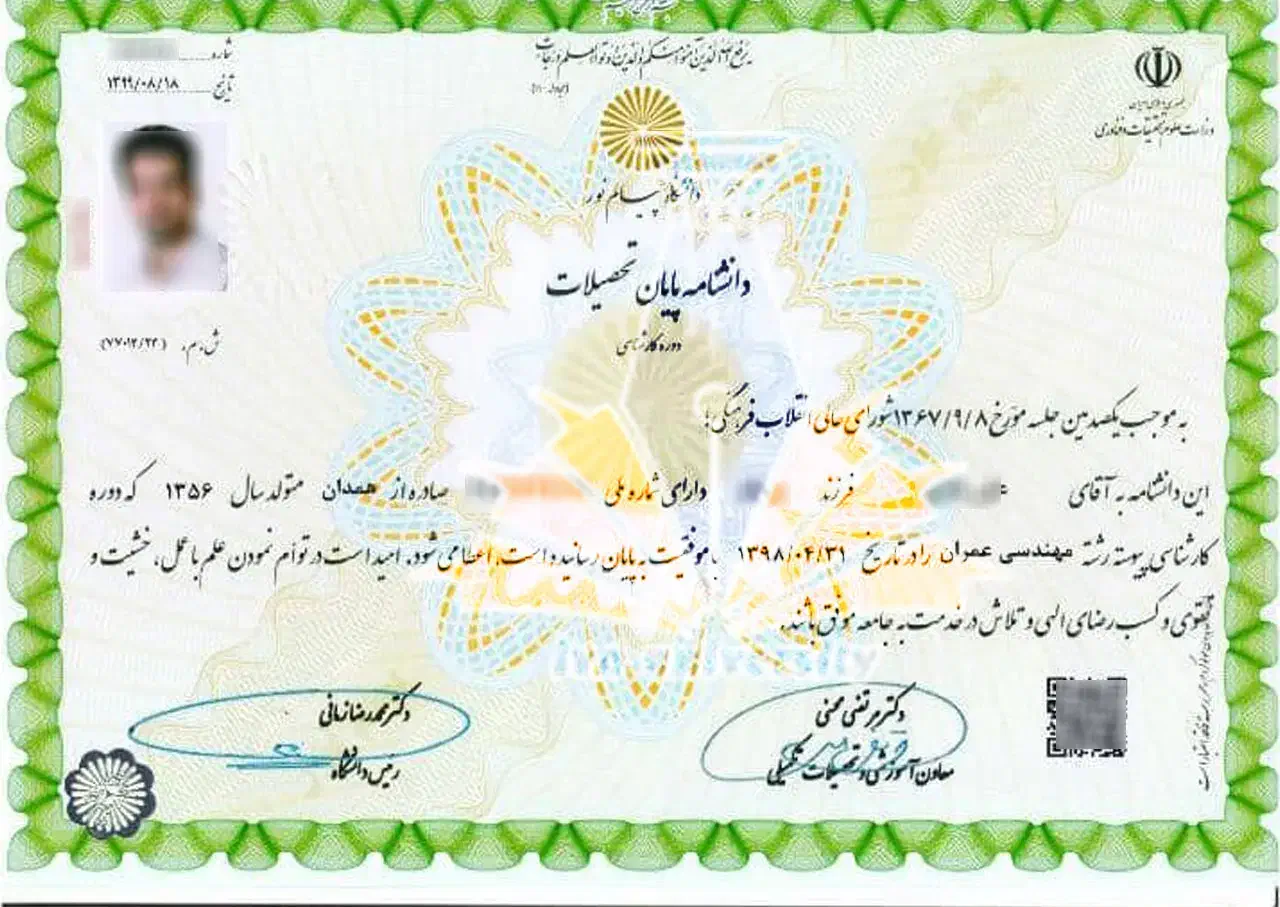 شماره
تاریخ ۱۳۹۹/۰۸/۱۸
یرفع الله الذین آمنوا منکم و الذین اوتوا العلم درجات
(مجادله-۱۱)
جمهوری اسلامی ایران
وزارت علوم، تحقیقات و فناوری
دانشگاه پیام نور
دانشنامه پایان تحصیلات
دوره کارشناسی
ش.م.
به موجب یکصدمین جلسه مورخ ۱۳۶۷/۹/۸ شورای عالی انقلاب فرهنگی؛
این دانشنامه به آقای فرزند دارای شماره ملی صادره از همدان متولد سال ۱۳۵۶ که دوره
کارشناسی پیوسته رشته مهندسی عمران را در تاریخ ۱۳۹۸/۰۴/۳۱ با موفقیت به پایان رسانیده است، اعطا می شود. امید است در توأم نمودن علم با عمل، خشیت و
تقوی و کسب رضای الهی و تلاش در خدمت به جامعه موفق باشند.
دکتر مرتضی محبی
معاون آموزشی و تحصیلات تکمیلی
دکتر محمدرضا زمانی
رئیس دانشگاه